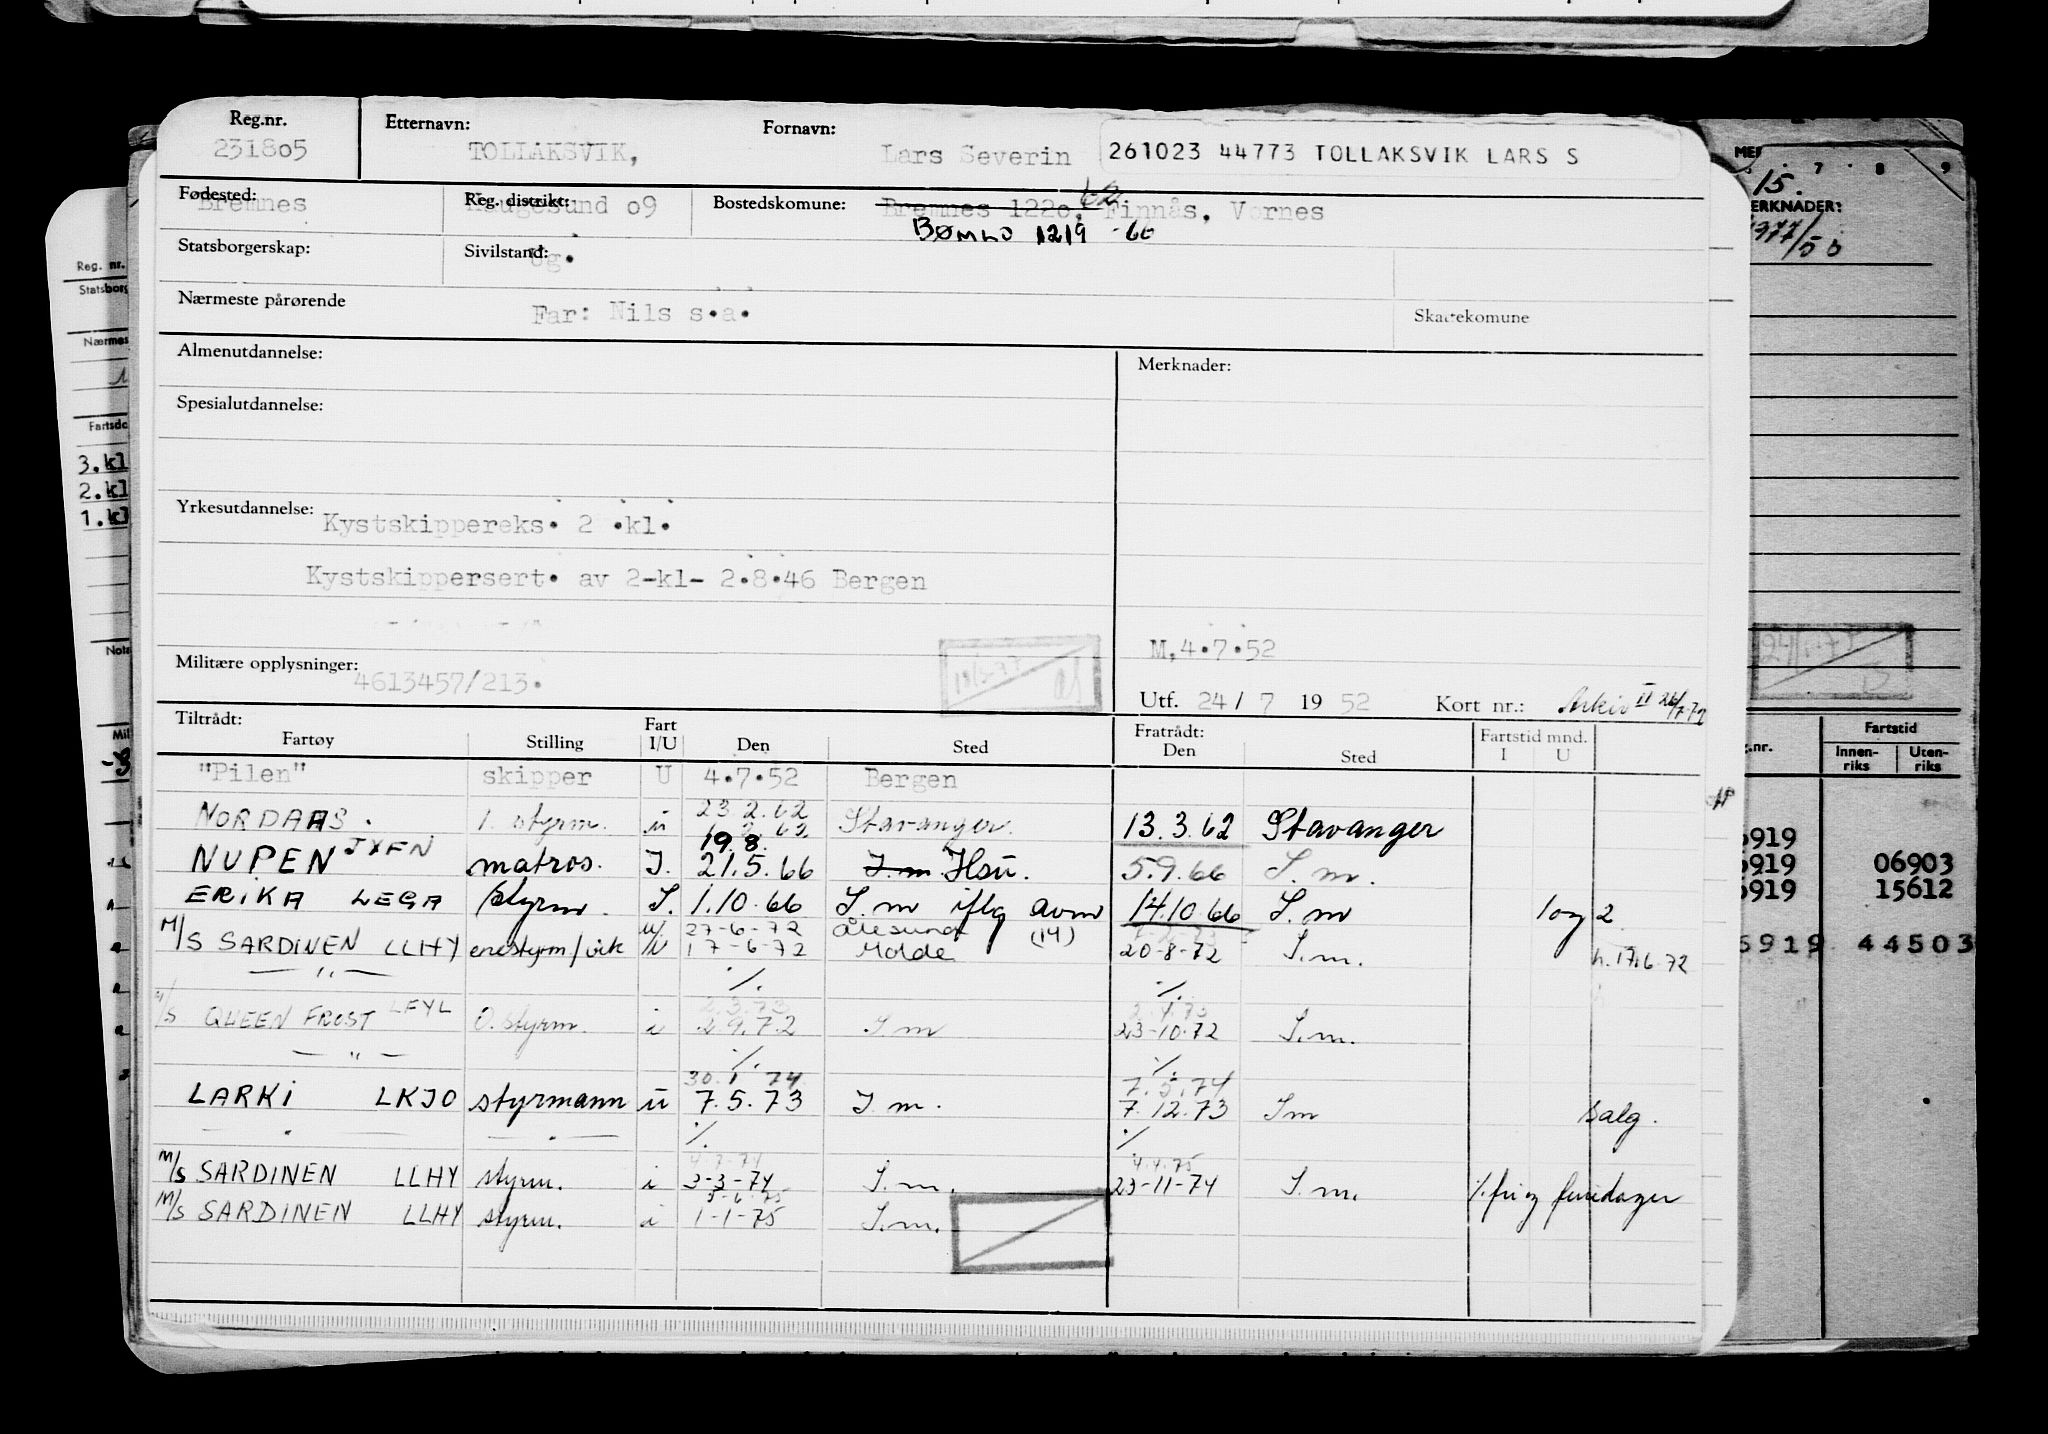 Reg.nr. Etternavn: Fornavn:
231805 TOLLAKSVIK, Lars Severin 261023 44773 TOLLAKSVIK LARS S
Fødested: Reg. distrikt: Bostedskomune: 62
Bremnes Haugesund 09 Bremnes 1220, Finnås, Vornes
BØMLO 1219 -66
Statsborgerskap: Sivilstand: Ug.
Nærmeste pårørende Far: Nils s.a. Skattekomune
Almenutdannelse: Merknader:
Spesialutdannelse:
Yrkesutdannelse: Kystskippereks. 2 .kl.
Kystskippersert. av 2-kl- 2.8.46 Bergen
M, 4.7.52
Militære opplysninger: 4613457/213.
Utf. 24 / 7 19 52 Kort nr.: Arkiv II 26/7-72
Tiltrådt: Fart Fratrådt: Fartstid mnd.
Fartøy Stilling I/U Den Sted Den Sted I U
"Pilen" skipper U 4.7.52 Bergen
23.2.62
NORDAAS. 1. styrm. u Stavanger. 13.3.62 Stavanger
19.8.
NUPEN JXFN matros. I. 21.5.66 I.m. Hsu. 5.9.66 I.m.
ERIKA LEGA styrm. I. 1.10.66 I.m iflg avm (14) 14.10.66 I.m 1 og 2
u. 27-6-72 Ålesund
M/S SARDINEN LLHY enestyrm/vik u 17-6-72 Molde 20-8-72 I.m. h. 17.6.72
— " — %. %.
2.3.73 2.4.73
M/S QUEEN FROST LFYL Ø.styrm. i 2.9.72 I m 23-10-72 I.m.
— " — %. %.
30.1.74 7.5.74
LARKI LKJO styrmann u 7.5.73 I.m. 7.12.73 I m Salg.
— " — — " — %. %
4.2.74 4.4.75
M/S SARDINEN LLHY styrm. i 3-3-74 I.m. 23-11-74 I.m. %. fri og feriedager
5-6-75
M/S SARDINEN LLHY styrm. i 1-1-75 I.m.
Reg. nr.
Statsborg
Nærmes
Fartsdo
3.kl
2.kl
1.kl
Mil
7 8 9
15.
MERKNADER:
1977/50
Fartstid
Innen-riks Uten-riks
6919
6919 06903
6919 15612
6919 44503